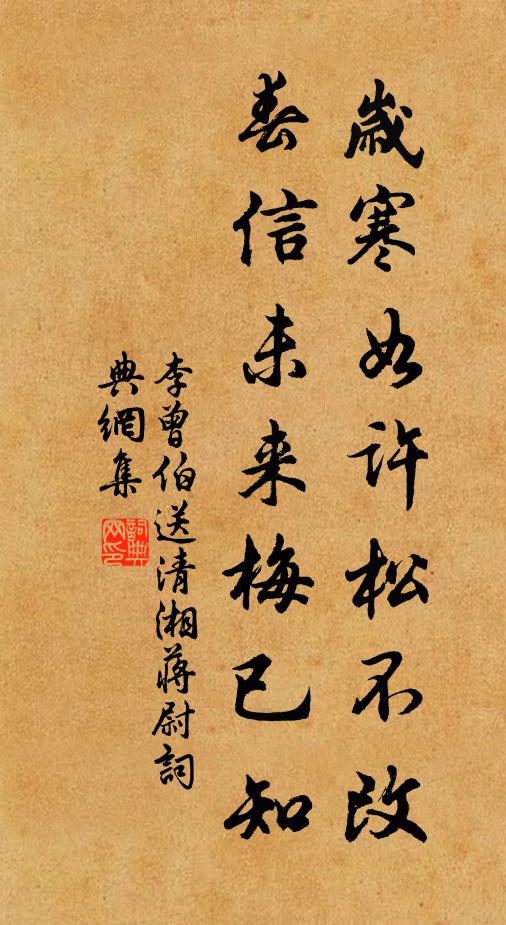 歲寒如許松不改
春信未來梅已知
李曾伯送清湘蔣尉詞
典網集
詞典
网印